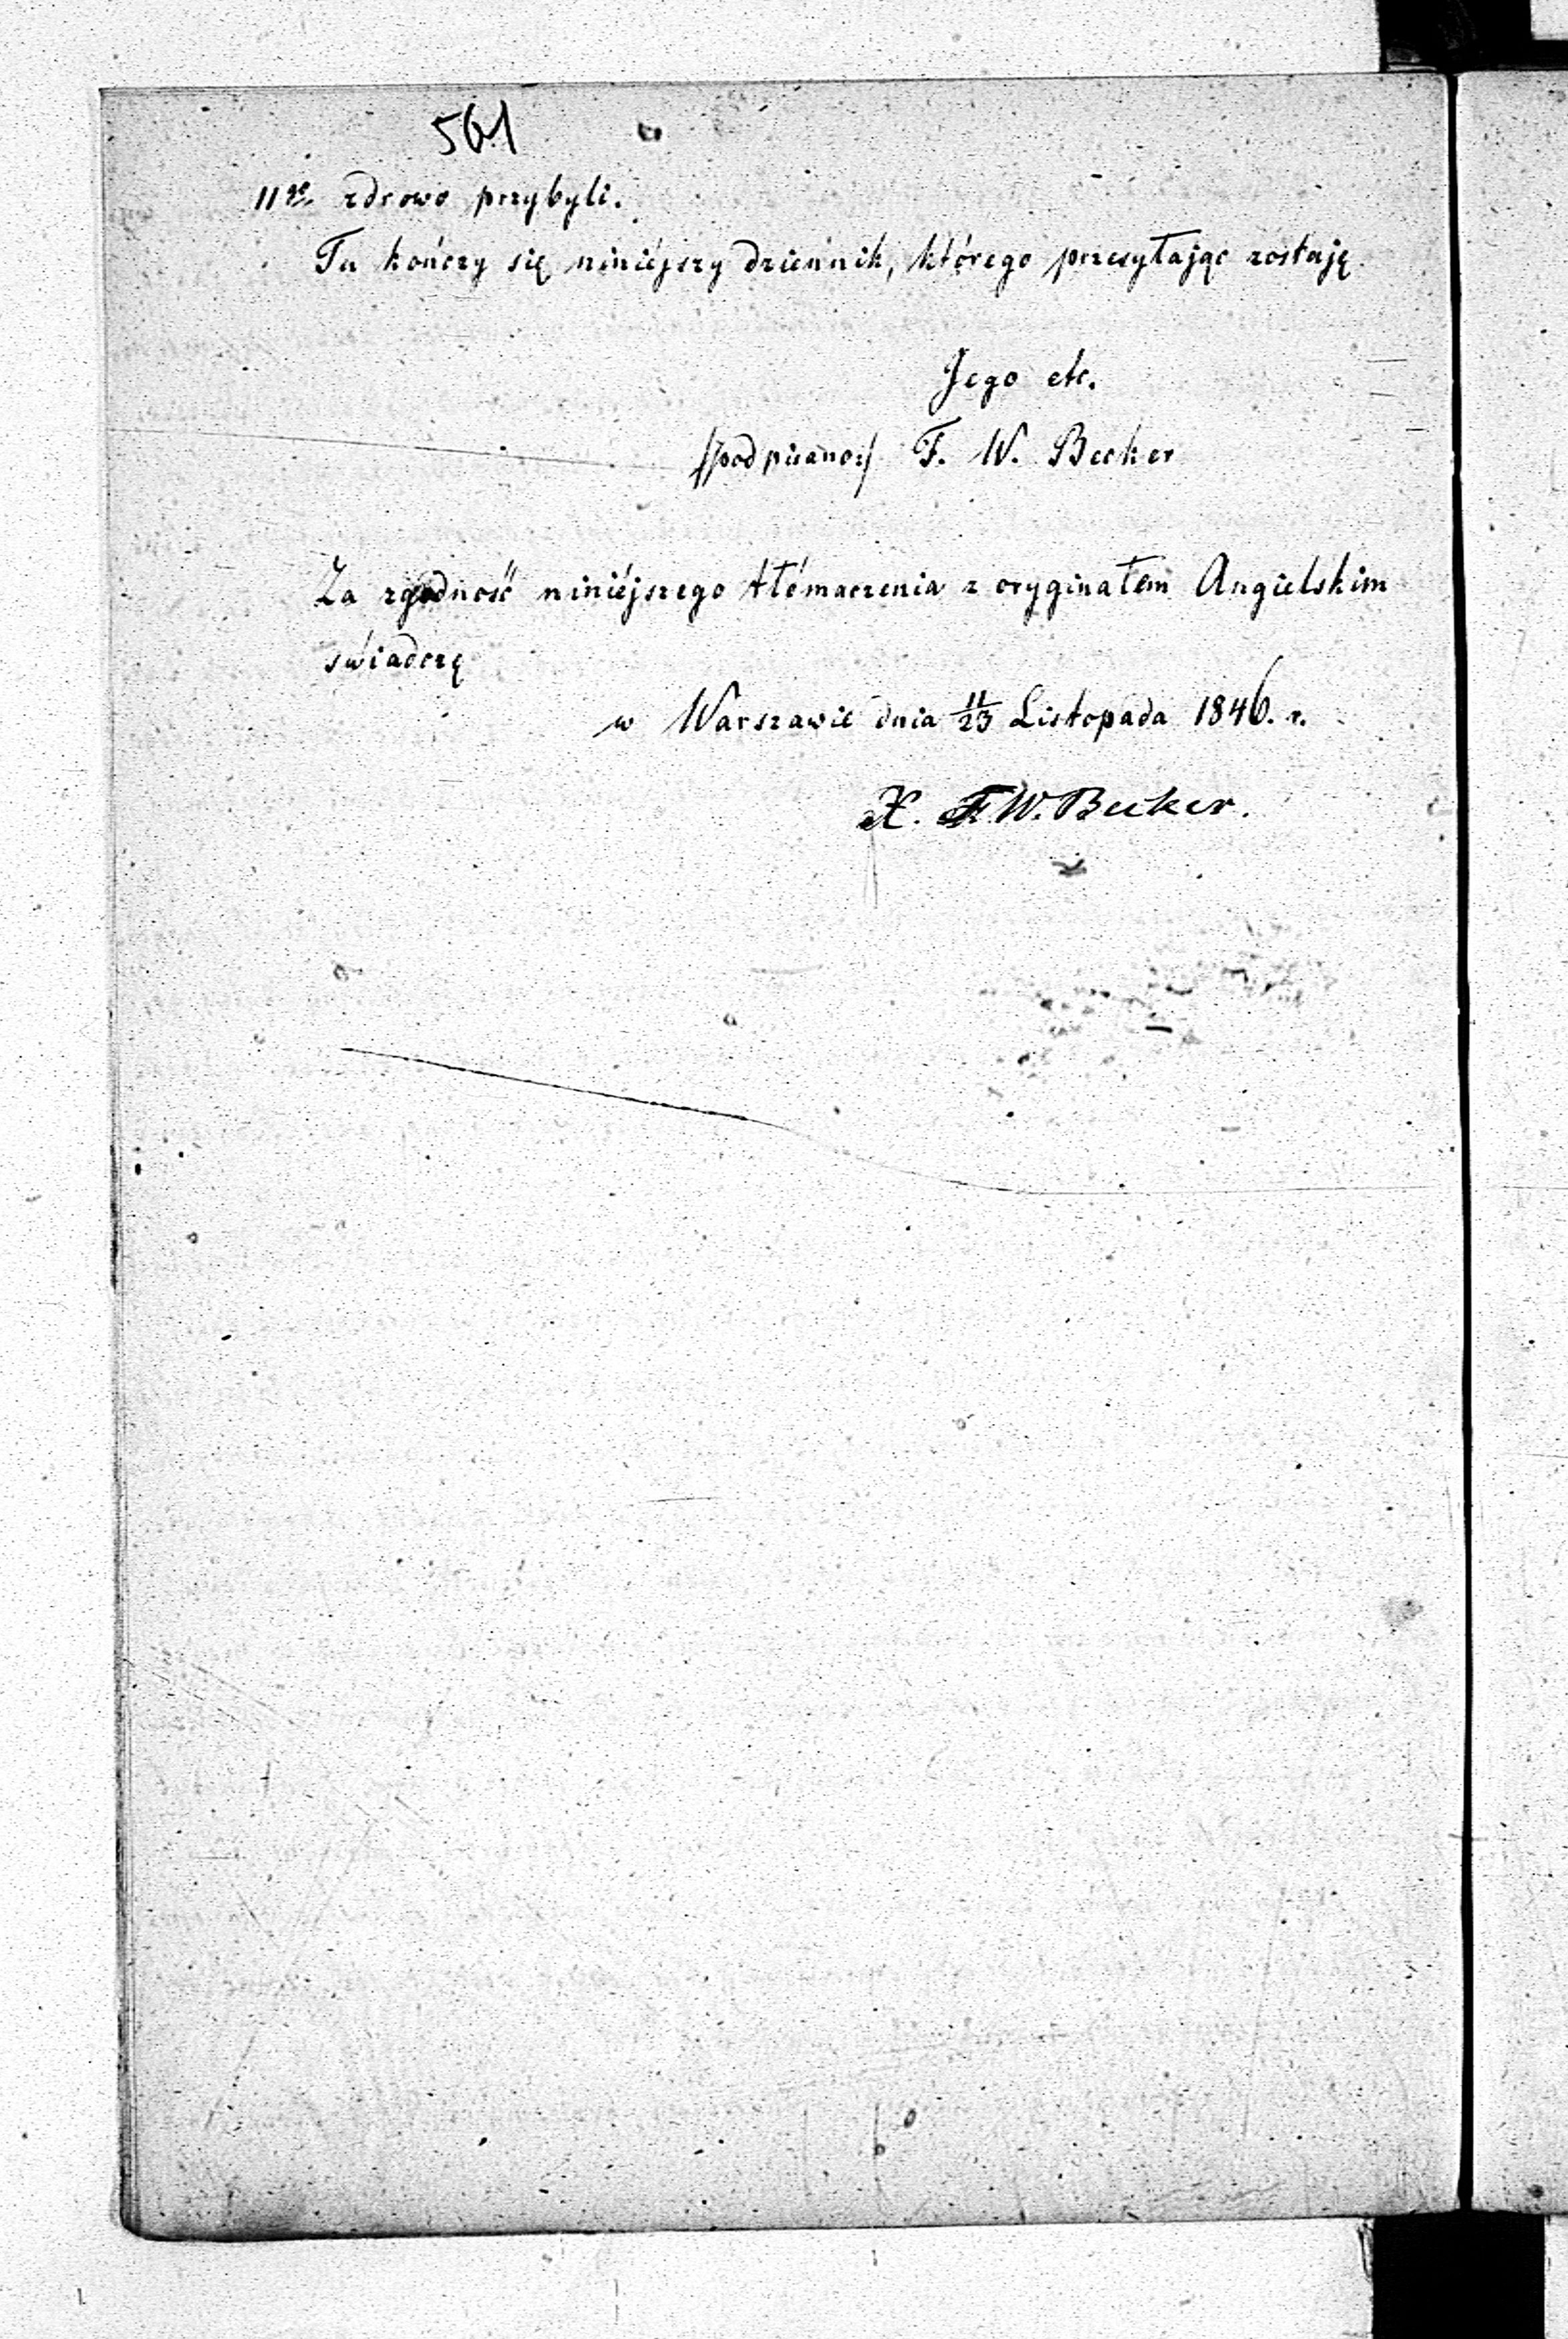 561
11go zdrowo przybyli.
Tu kończy się niniéjszy dziennik, którego przesyłając zostaję
Jego etc.
/:podpisano:/ F. W. Becker
Za zgodność niniéjszego tłómaczenia z oryginałem Angielskim
świadczę
w Warszawie dnia 11/23 Listopada 1846. r.
X. F. W. Becker.